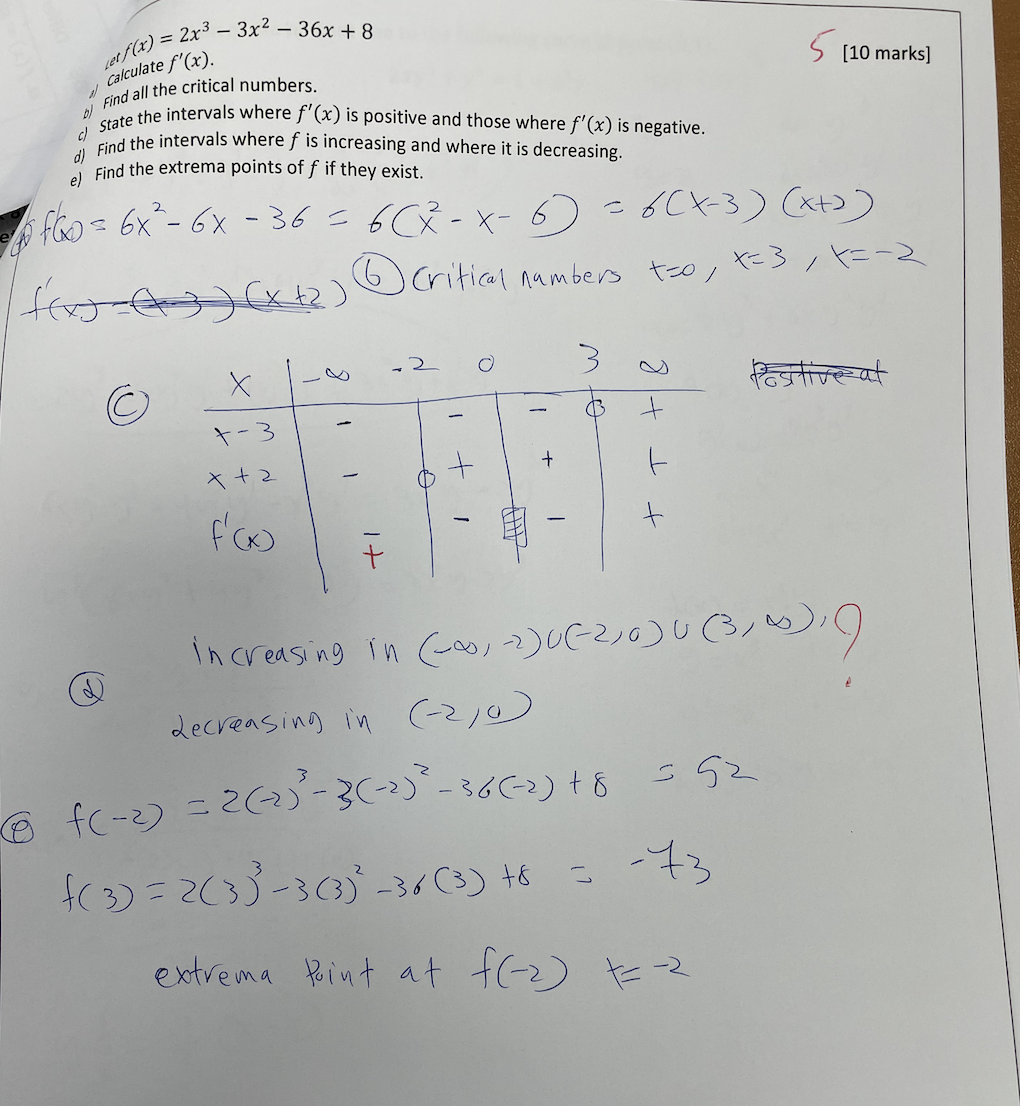 Let f(x) = 2x³ − 3x² − 36x + 8
5 [10 marks]
a) Calculate f′(x).
b) Find all the critical numbers.
c) State the intervals where f′(x) is positive and those where f′(x) is negative.
d) Find the intervals where f is increasing and where it is decreasing.
e) Find the extrema points of f if they exist.
f′(x) = 6x² - 6x - 36 = 6(x² - x - 6) = 6(x-3) (x+2)
f′(x) = (x-3) (x+2)
ⓑ critical numbers x=0, x=3, x=-2
ⓒ x -∞ -2 0 3 ∞
Postive at
x-3 - - - +
x+2 - + + +
f′(x) - - - +
+
ⓓ increasing in (-∞, -2)∪(-2, 0) ∪ (3, ∞), ?
decreasing in (-2, 0)
ⓔ f(-2) = 2(-2)³ - 3(-2)² - 36(-2) + 8 = 52
f(3) = 2(3)³ - 3(3)² - 36(3) + 8 = -73
extrema point at f(-2) x=-2